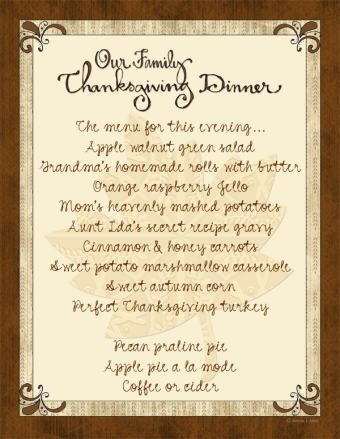 Our Family
Thanksgiving Dinner
The menu for this evening...
Apple walnut green salad
Grandma's homemade rolls with butter
Orange raspberry Jello
Mom's heavenly mashed potatoes
Aunt Ida's secret recipe gravy
Cinnamon & honey carrots
Sweet potato marshmallow casserole
Sweet autumn corn
Perfect Thanksgiving turkey
Pecan praline pie
Apple pie a la mode
Coffee or cider